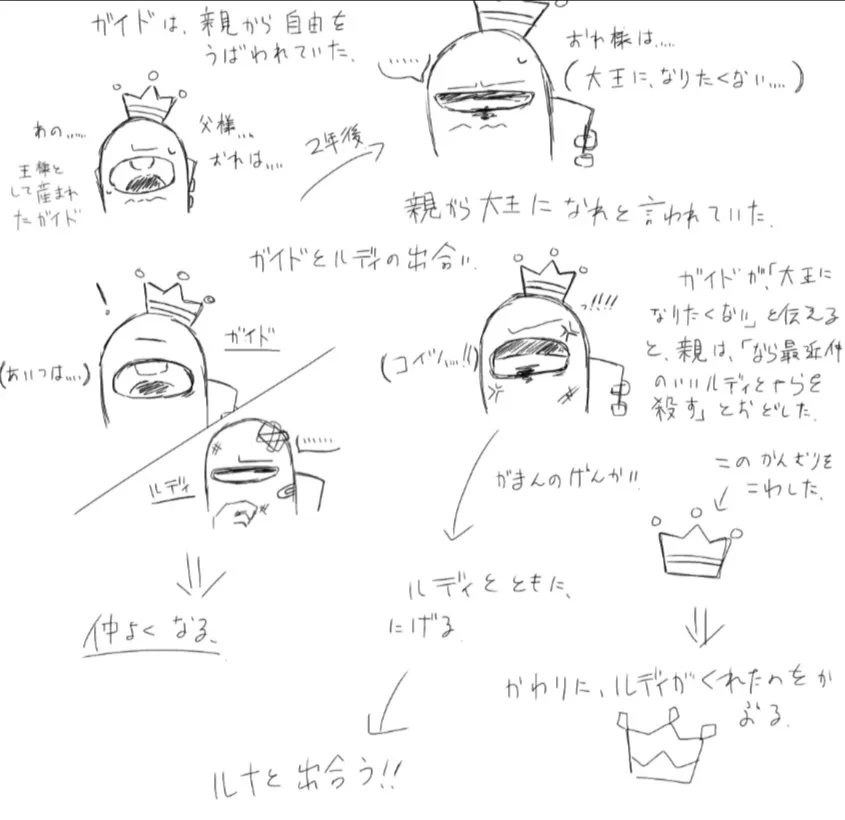 ガイドは、親から自由を
うばわれていた。
あの……
父様…
おれは……
王様と
して産まれ
たガイド
2年後
……
おれ様は……
(大王に、なりたくない……)
親から大王になれと言われていた。
ガイドとルディの出合い。
!
(あいつは……)
ガイド
……
ルディ
仲よくなる。
っ!!!!
(コイツ……!!)
ガイドが、「大王に
なりたくない」と伝える
と、親は、「なら最近仲
のいいルディとやらを
殺す」とおどした。
がまんのげんかい!!
ルディとともに、
にげる。
ルナと出合う!!
このかんむりを
こわした。
かわりに、ルディがくれたのをか
ぶる。